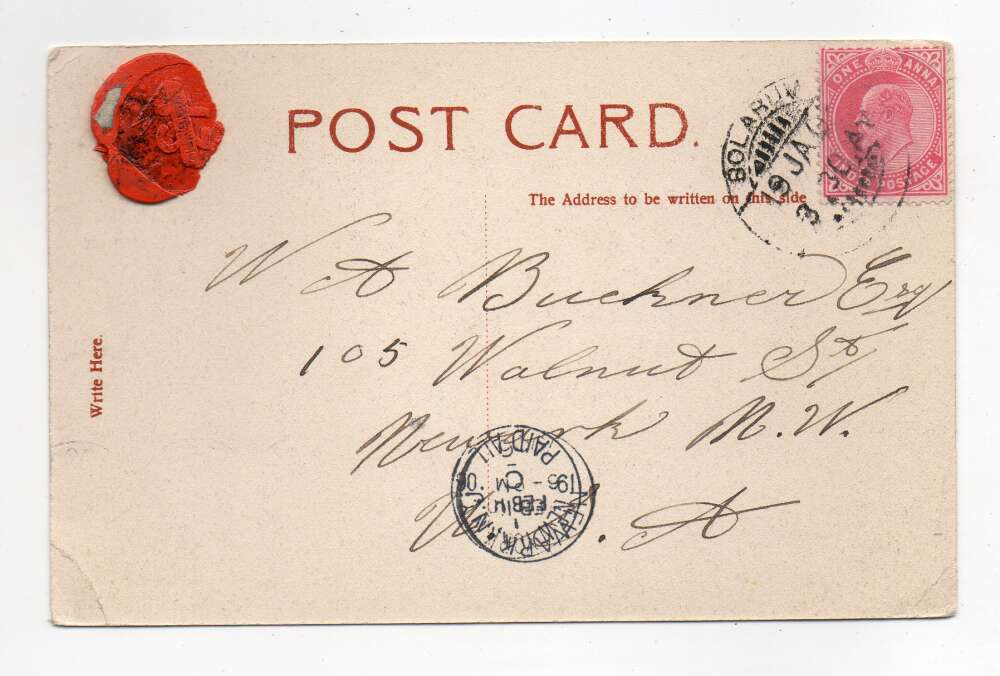 POST CARD.
ONE ANNA
POSTAGE
BOLARUM
19 JA
The Address to be written on this side
Write Here.
W A Buckner Esq
105 Walnut St
Newark N. W.
U. S. A
NEWARK, N.J.
FEB 10
6 - PM
PAID ALL